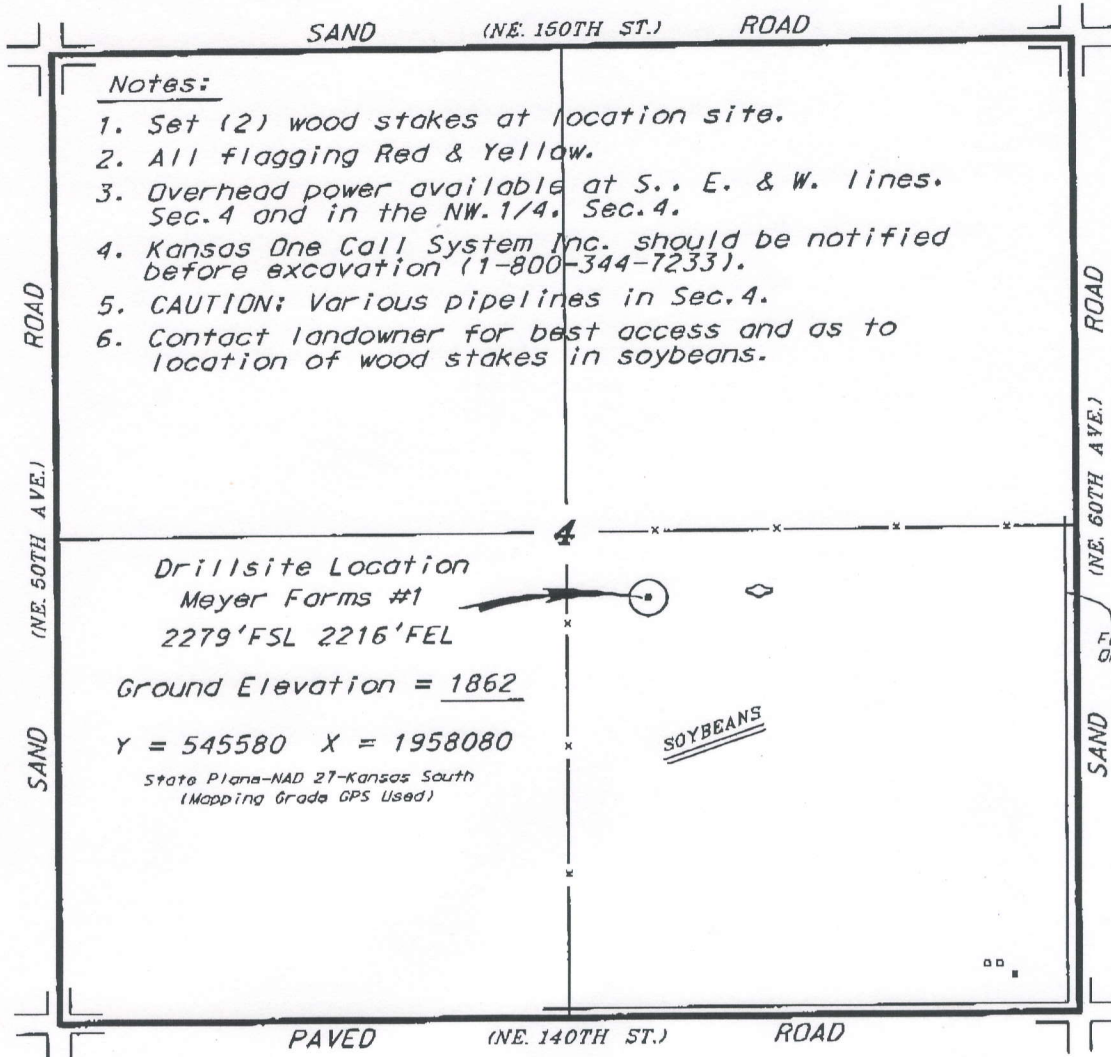 SAND (NE. 150TH ST.) ROAD
Notes:
1. Set (2) wood stakes at location site.
2. All flagging Red & Yellow.
3. Overhead power available at S., E. & W. lines.
Sec.4 and in the NW.1/4. Sec.4.
4. Kansas One Call System Inc. should be notified
before excavation (1-800-344-7233).
5. CAUTION: Various pipelines in Sec.4.
6. Contact landowner for best access and as to
location of wood stakes in soybeans.
SAND (NE. 50TH AVE.) ROAD
SAND (NE. 60TH AVE.) ROAD
4
Drillsite Location
Meyer Farms #1
2279'FSL 2216'FEL
Ground Elevation = 1862
Y = 545580 X = 1958080
State Plane-NAD 27-Kansas South
(Mapping Grade GPS Used)
SOYBEANS
PAVED (NE. 140TH ST.) ROAD